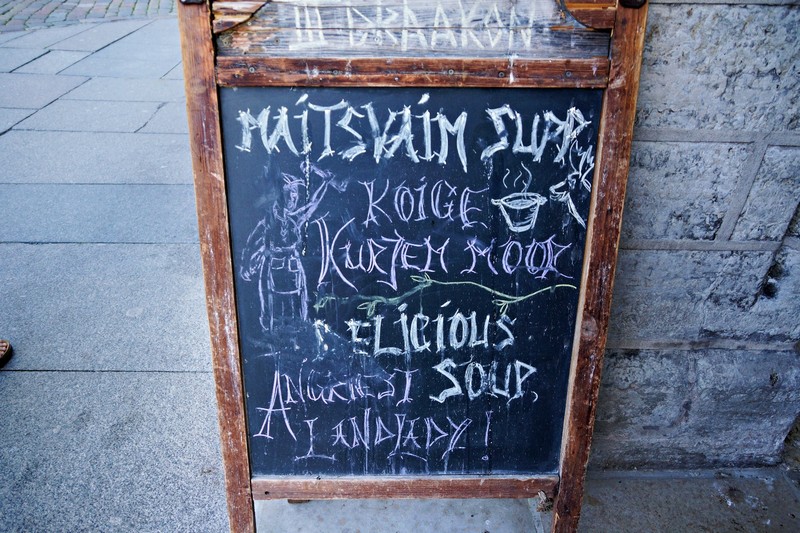 III DRAAKON
MAITSVAIM SUPP
KOIGE
KURJEM MOOR
DELICIOUS
SOUP,
ANGRIEST
LANDLADY!